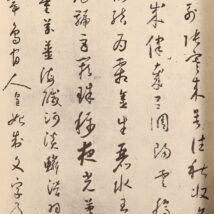 列張寒來暑往秋收
歲律呂調陽雲騰
結為霜金生麗水玉
號巨闕珠稱夜光
芥薑海鹹河淡鱗潛羽
帝鳥官人皇始制文字